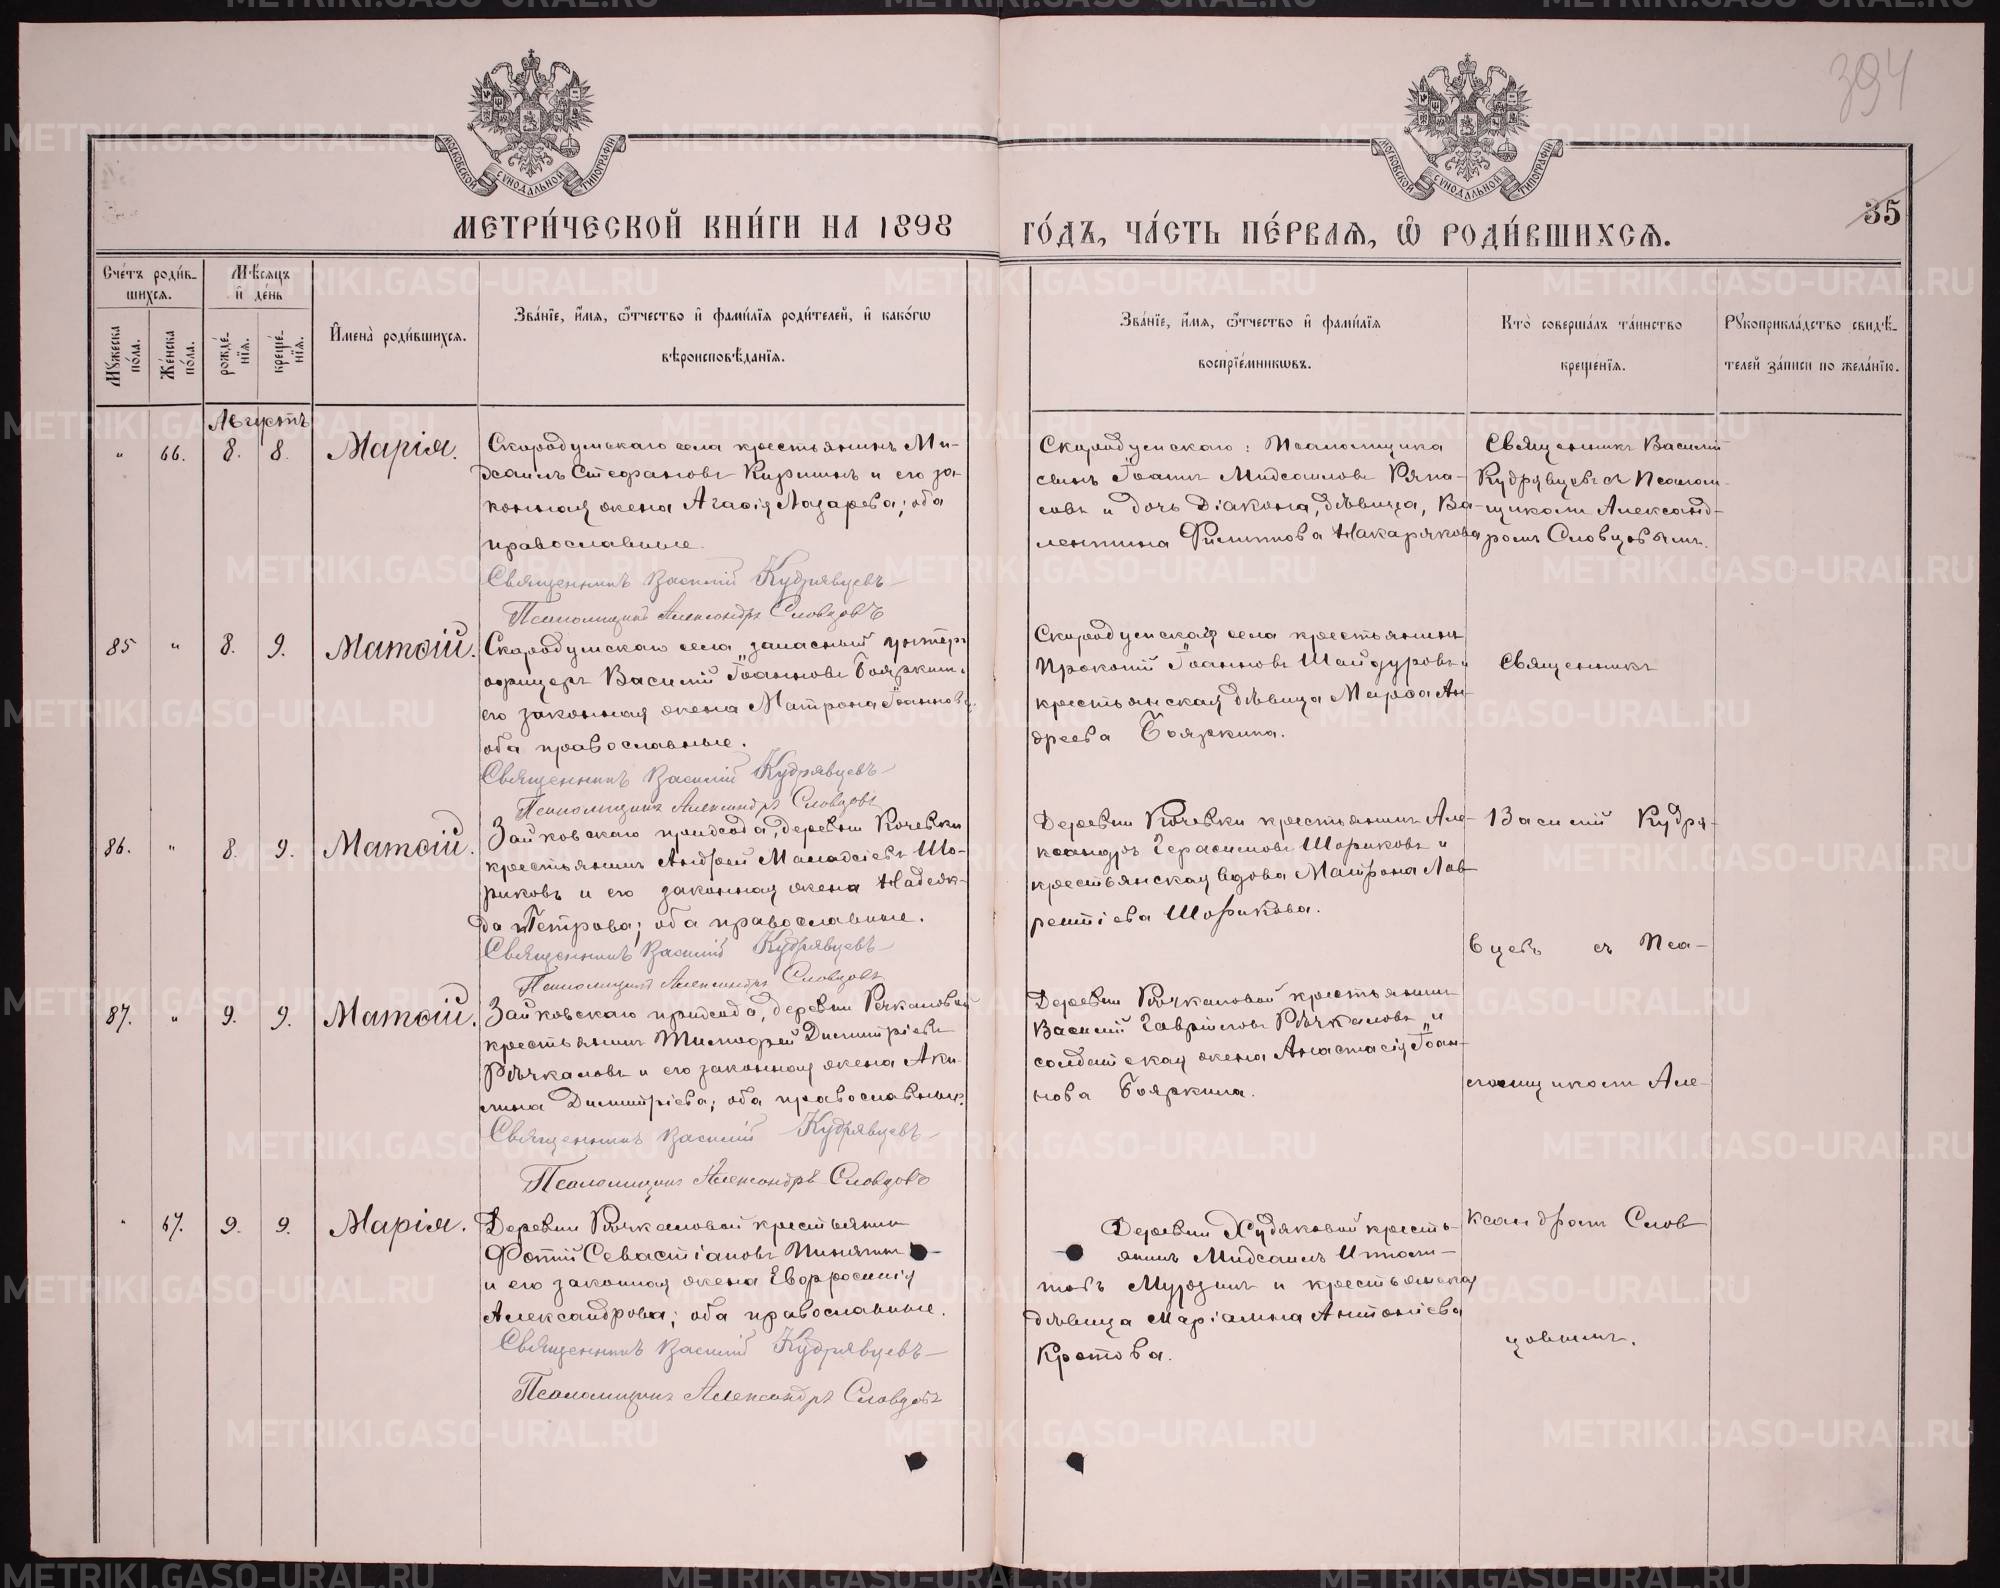 394
35
МОСКОВСКОЙ СУНОДАЛЬНОЙ ТИПОГРАФІИ
МОСКОВСКОЙ СУНОДАЛЬНОЙ ТИПОГРАФІИ
МЕТРИ́ЧЕСКОЙ КНИ́ГИ НА 1898 ГО́ДЪ, ЧА́СТЬ ПЕ́РВАѦ, Ѽ РОДИ́ВШИХСѦ.
Сче́тъ роди́в-
шихсѧ.
Мꙋ́жеска по́ла.
Же́нска по́ла.
Мѣ́сѧцъ
и҆ де́нь
рожде́-
нїѧ.
креще́-
нїѧ.
И҆мена̀ роди́вшихсѧ.
Зва́нїе, и҆́мѧ, ѻ҆́тчество и҆ фами́лїѧ роди́телей, и҆ како́гѡ
вѣроисповѣ́данїѧ.
Зва́нїе, и҆́мѧ, ѻ҆́тчество и҆ фами́лїѧ
воспрїе́мникѡвъ.
Кто̀ соверша́лъ та́инство
креще́нїѧ.
Рꙋкоприкла́дство свидѣ́-
телей за́писи по жела́нїю.
Августъ
„ 66. 8. 8. Марія.
Скородумскаго села крестьянинъ Ми-
хаилъ Стефановъ Киришинъ и его за-
конная жена Агафія Лазарева; оба
православные.
Священникъ Василій Кудрявцевъ
Псаломщикъ Александръ Словцовъ
Скородумскаго: Псаломщика
сынъ Іоаннъ Михаиловъ Ряпа-
совъ и дочь Діакона, дѣвица, Ва-
лентина Филиппова Макарякова
Священникъ Василій
Кудрявцевъ съ Псалом-
щикомъ Александ-
ромъ Словцовымъ.
85 „ 8. 9. Матѳій.
Скородумскаго села запасный унтеръ
офицеръ Василій Іоанновъ Бояркинъ,
его законная жена Матрона Іоаннова,
оба православные.
Священникъ Василій Кудрявцевъ
Псаломщикъ Александръ Словцовъ
Скородумскаго села крестьянинъ
Прокопій Іоанновъ Шайдуровъ и
крестьянская дѣвица Марѳа Ан-
дреева Бояркина.
Священникъ
86. „ 8. 9. Матѳій.
Зайковскаго прихода, деревни Кочевки
крестьянинъ Андрей Малахіевъ Шо-
риковъ и его законная жена Надеж-
да Петрова; оба православные.
Священникъ Василій Кудрявцевъ
Псаломщикъ Александръ Словцовъ
Деревни Кочевки крестьянинъ Але-
ксандръ Герасимовъ Шориковъ и
крестьянская вдова Матрона Лав-
рентіева Шорикова.
Василій Кудря-
вцевъ съ Пса-
87. „ 9. 9. Матѳій.
Зайковскаго прихода, деревни Речкаловой
крестьянинъ Тимофей Димитріевъ
Рѣчкаловъ и его законная жена Аки-
лина Димитріева; оба православные.
Священникъ Василій Кудрявцевъ
Псаломщикъ Александръ Словцовъ
Деревни Рѣчкаловой крестьянинъ
Василій Гавріиловъ Рѣчкаловъ и
солдатская жена Анастасія Іоан-
нова Бояркина.
ломщикомъ Але-
„ 67. 9. 9. Марія.
Деревни Рѣчкаловой крестьянинъ
Фотій Севастіановъ Пинягинъ
и его законная жена Евфросинія
Александрова; оба православные.
Священникъ Василій Кудрявцевъ
Псаломщикъ Александръ Словцовъ
Деревни Худяковой кресть-
янинъ Михаилъ Иппали-
товъ Мурзинъ и крестьянская
дѣвица Маріамна Антоніева
Кротова.
ксандромъ Слов
цовымъ.
METRIKI.GASO-URAL.RU